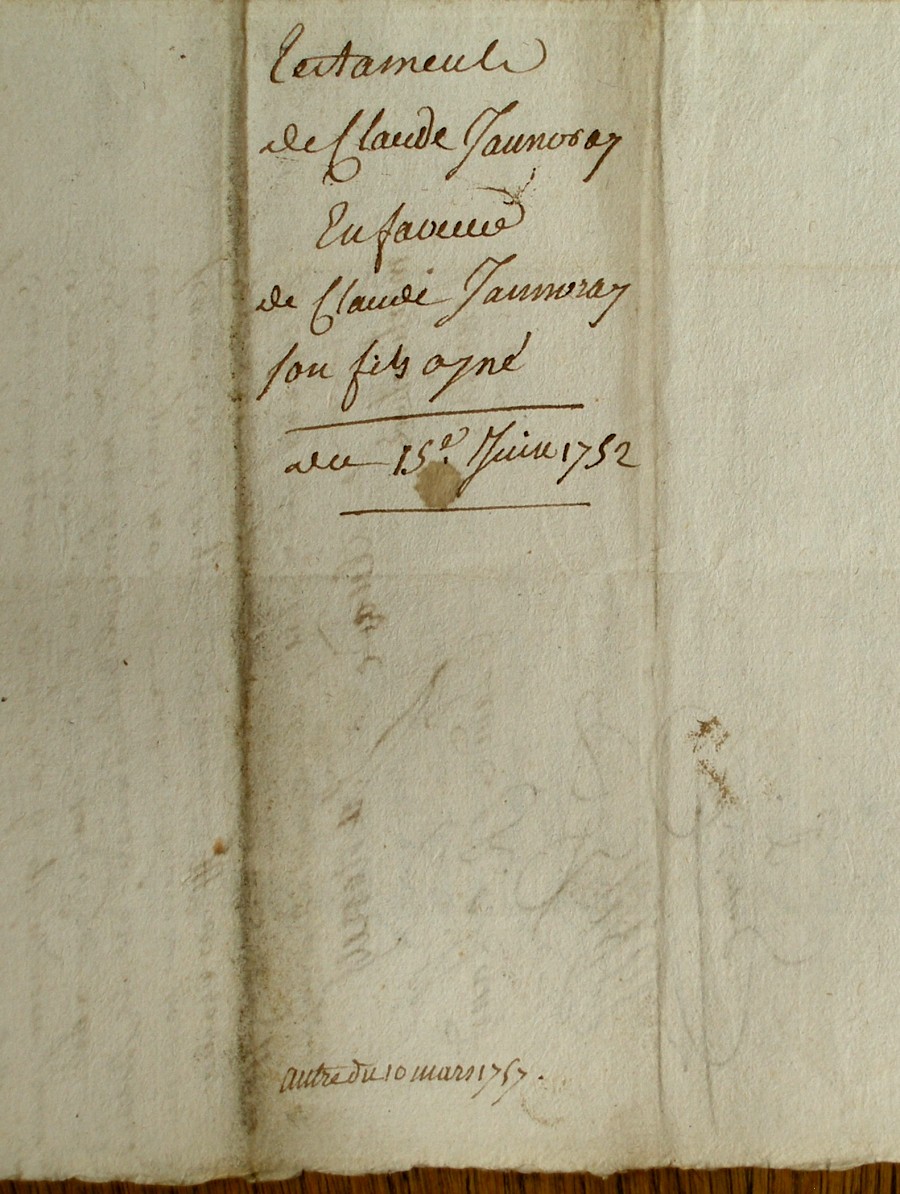 Testament
de Claude Jaunoray
En faveur
de Claude Jaunoray
son fils ayné
du 15e. Juin 1752
autre du 10 mars 1757.